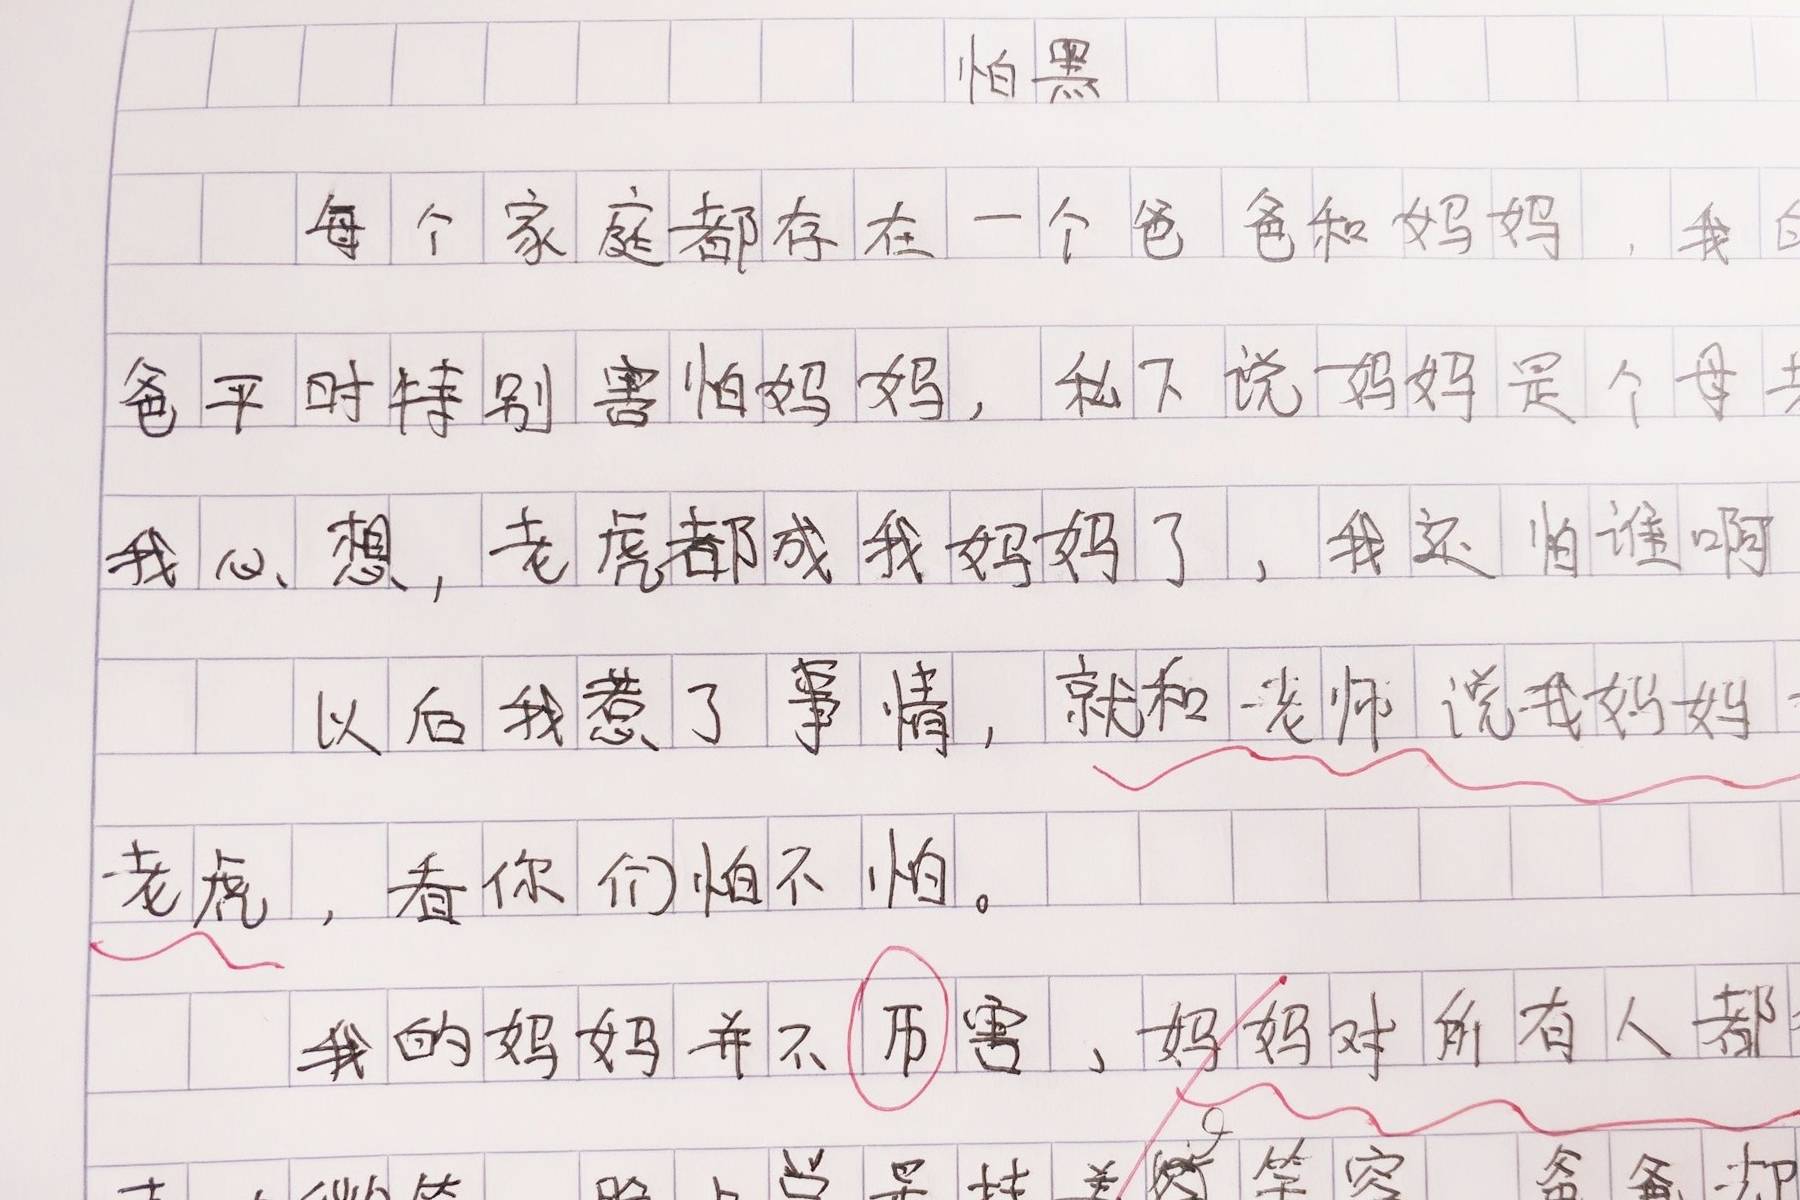 怕黑
每个家庭都存在一个爸爸和妈妈,我
爸平时特别害怕妈妈,私下说妈妈是个母
我心想,老虎都成我妈妈了,我还怕谁啊
以后我惹了事情,就和老师说我妈妈
老虎,看你们怕不怕。
我的妈妈并不历害,妈妈对所有人都
笑容 爸爸却